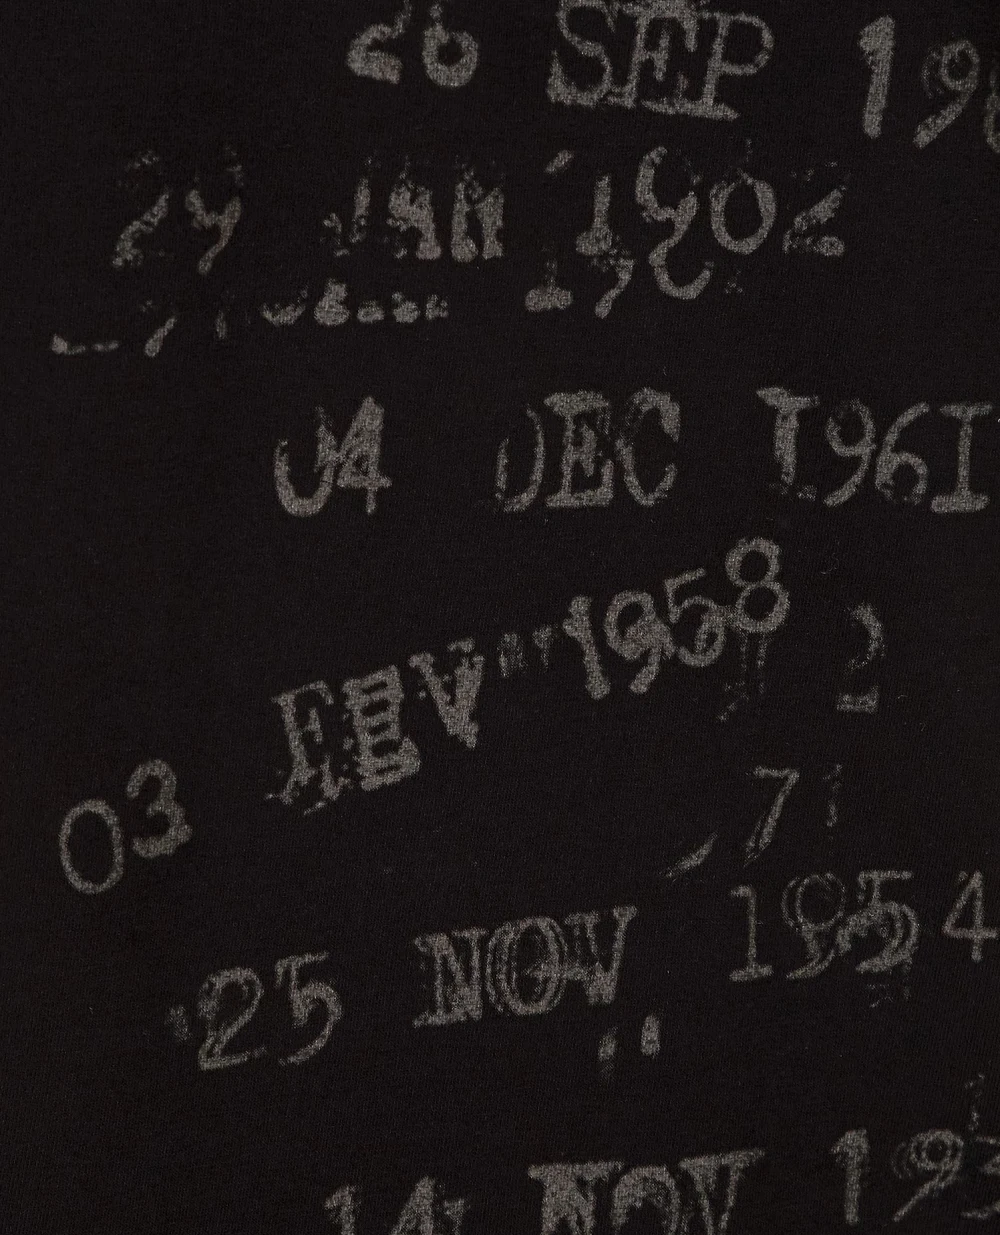 26 SEP 196
29 JAN 1902
04 DEC 1961
03 FEV 1958
2
71
25 NOV 1954
14 NOV 193